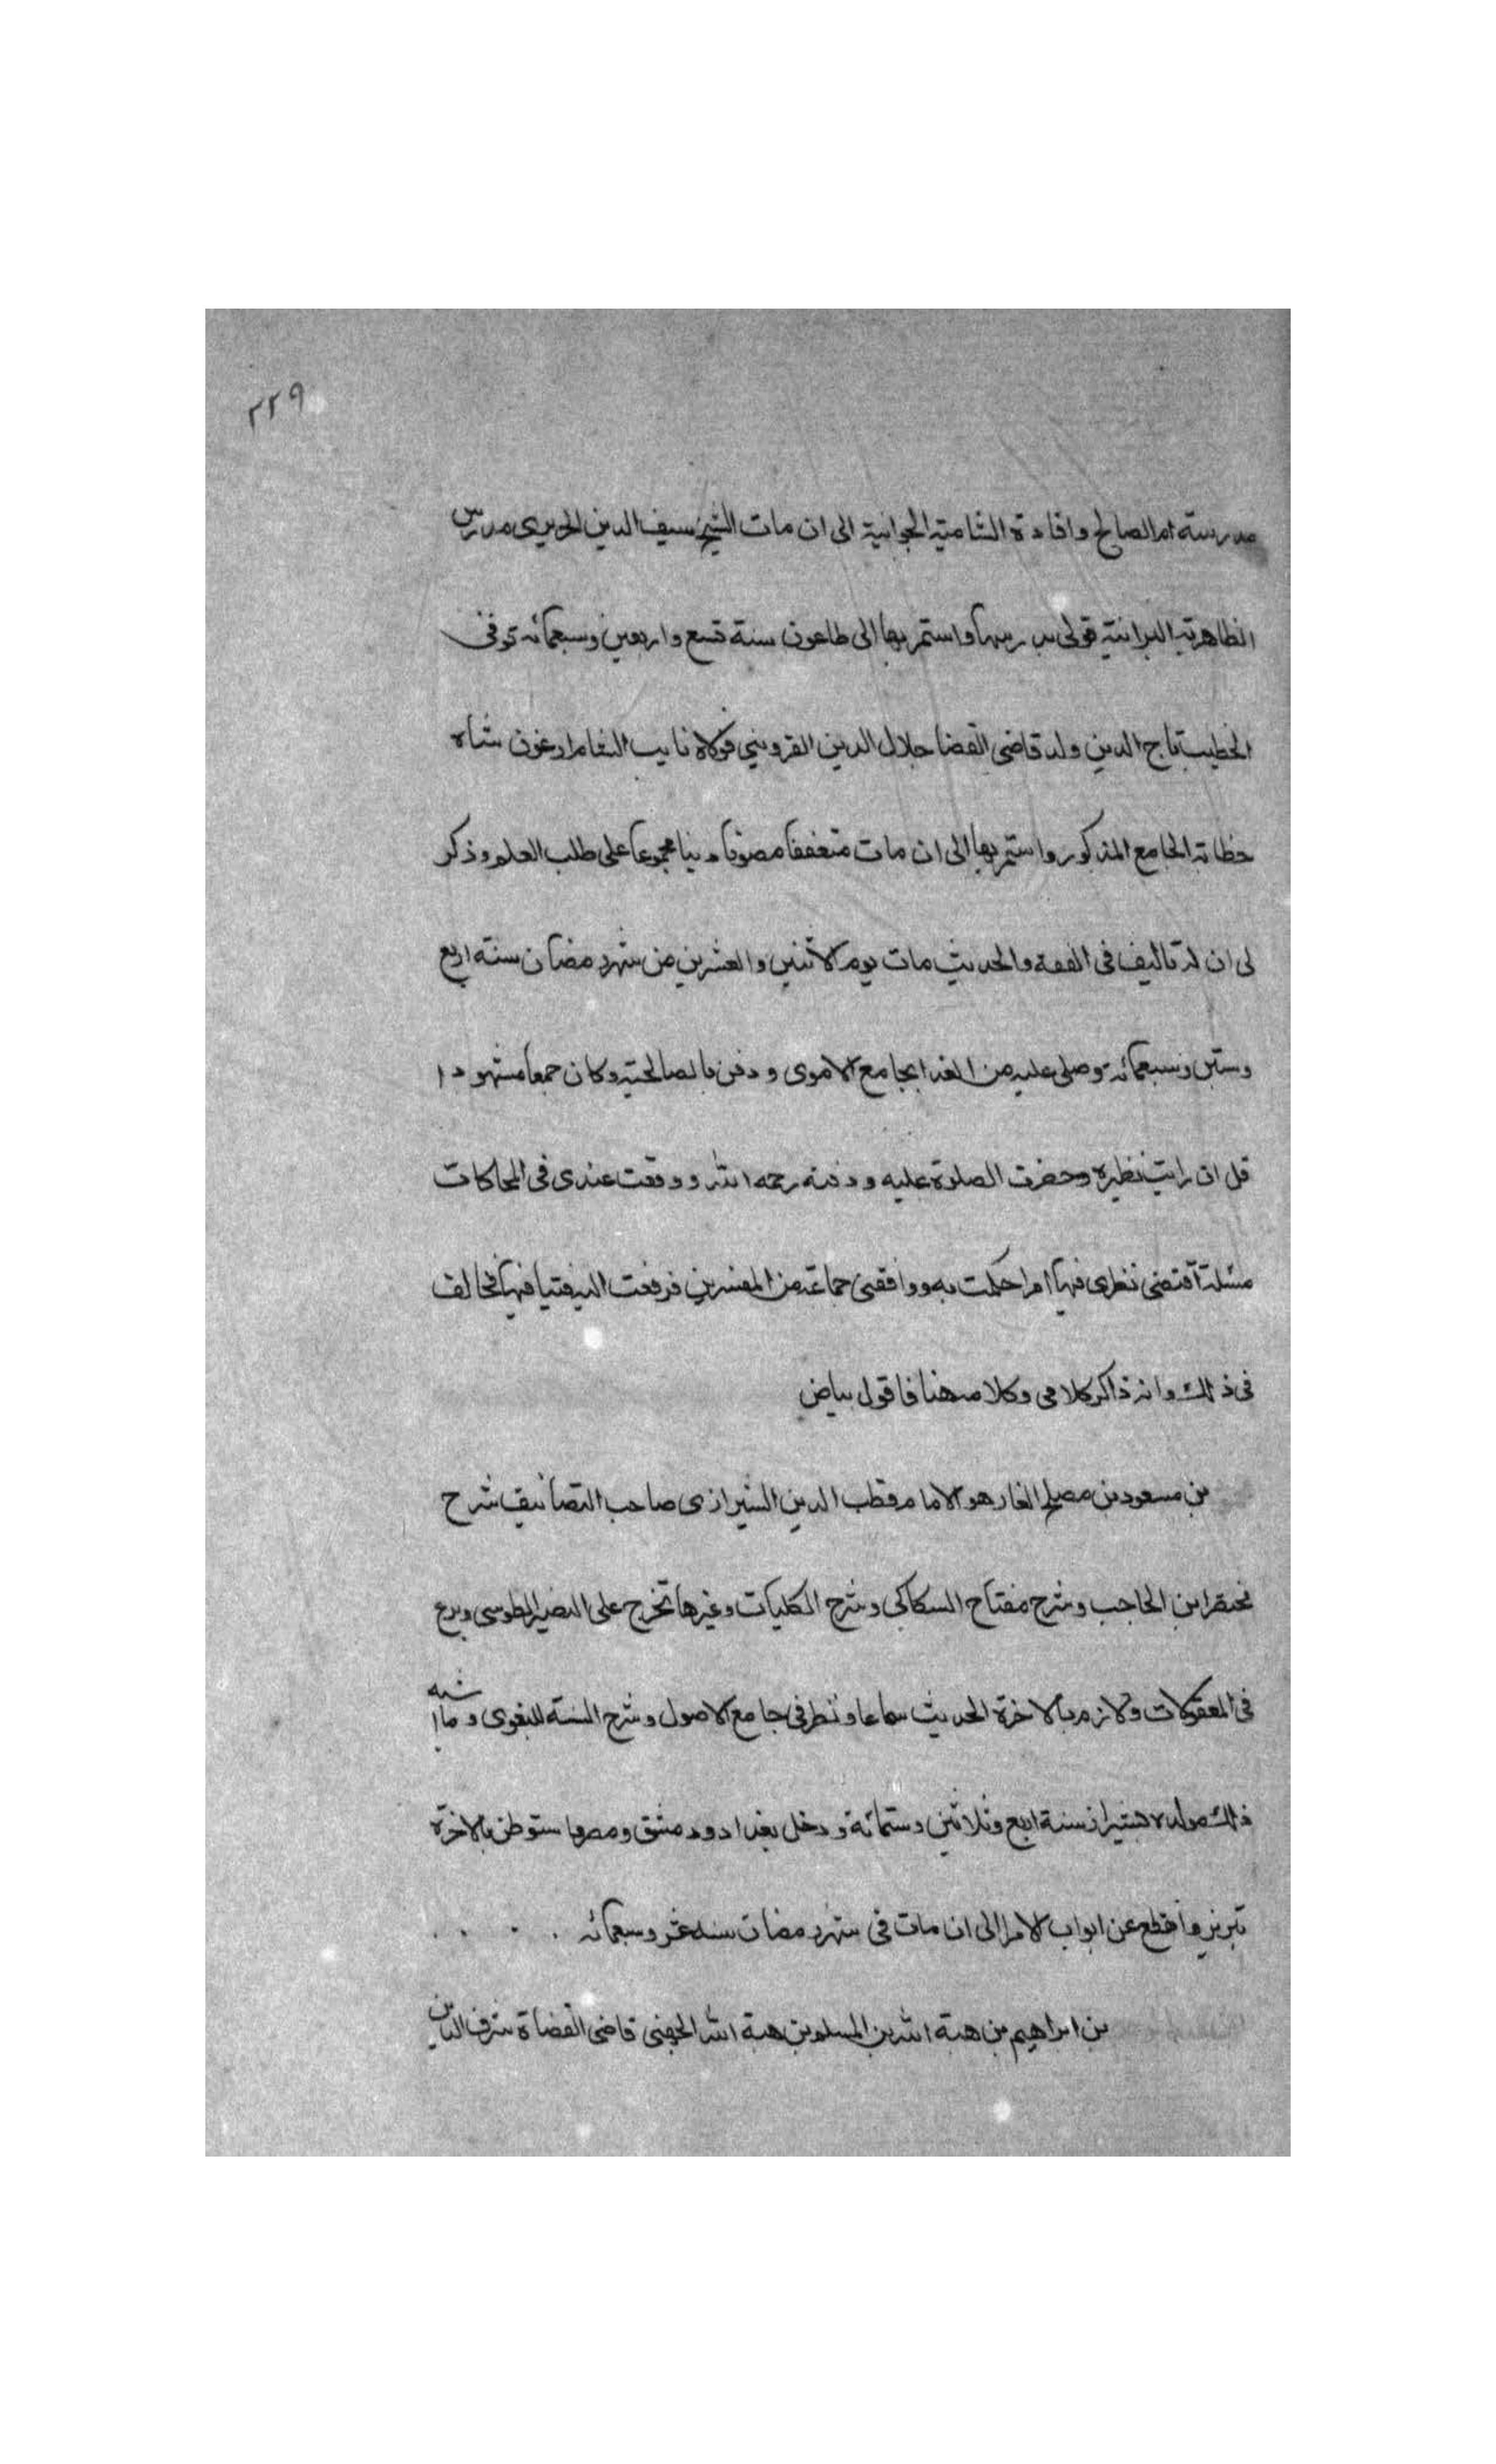 ٢٢٩
مدرسته ام الصالح وافادة الشامية الجوانية الى ان مات الشيخ سيف الدين الحريرى مدرس
الظاهرية البرانية فولى تدريسها واستمر بها الى طاعون سنة تسع واربعين وسبعمائه توفى
الخطيب تاج الدين ولد قاضى القضا جلال الدين القزوينى فولاه نايب الشام ارغون شاه
خطابة الجامع المذكور واستمر بها الى ان مات متعففا مصونا دينا مجموعا على طلب العلم وذكر
لى ان له تاليف فى الفقه والحديث مات يوم الاثنين والعشرين من شهر رمضان سنة اربع
وستين وسبعمائه وصلى عليه من الغد بجامع الاموى ودفن بالصالحية وكان جمعا مشهودا
قل ان رايت نظيره وحضرت الصلوة عليه ودفنه رحمه الله ووقعت عندى فى المحاكات
مسئلة اقتضى نظرى فيها امرا حكمت به ووافقنى جماعة من المفسرين فرفعت اليه فتيا فيها فخالف
فى ذلك وانه ذاكر كلامى وكلامه هنا فاقول بياض
بن مسعود بن مصلح الفار هو الامام قطب الدين الشيرازى صاحب التصانيف شرح
مختصر ابن الحاجب وشرح مفتاح السكاكى وشرح الكليات وغيرها تخرج على النصير الطوسى وبرع
فى المعقولات ولازم بالاخرة الحديث سماعا ونظر فى جامع الاصول وشرح السنة للبغوى وما اشبه
ذلك مولده بشيراز سنة اربع وثلاثين وستمائة ودخل بغداد ودمشق ومصر واستوطن بالاخرة
تبريز وانقطع عن ابواب الامرا الى ان مات فى شهر رمضان سنه عشر وسبعمائه
بن ابراهيم بن هبة الله بن المسلم بن هبة الله الجهنى قاضى القضاة شرف الدين